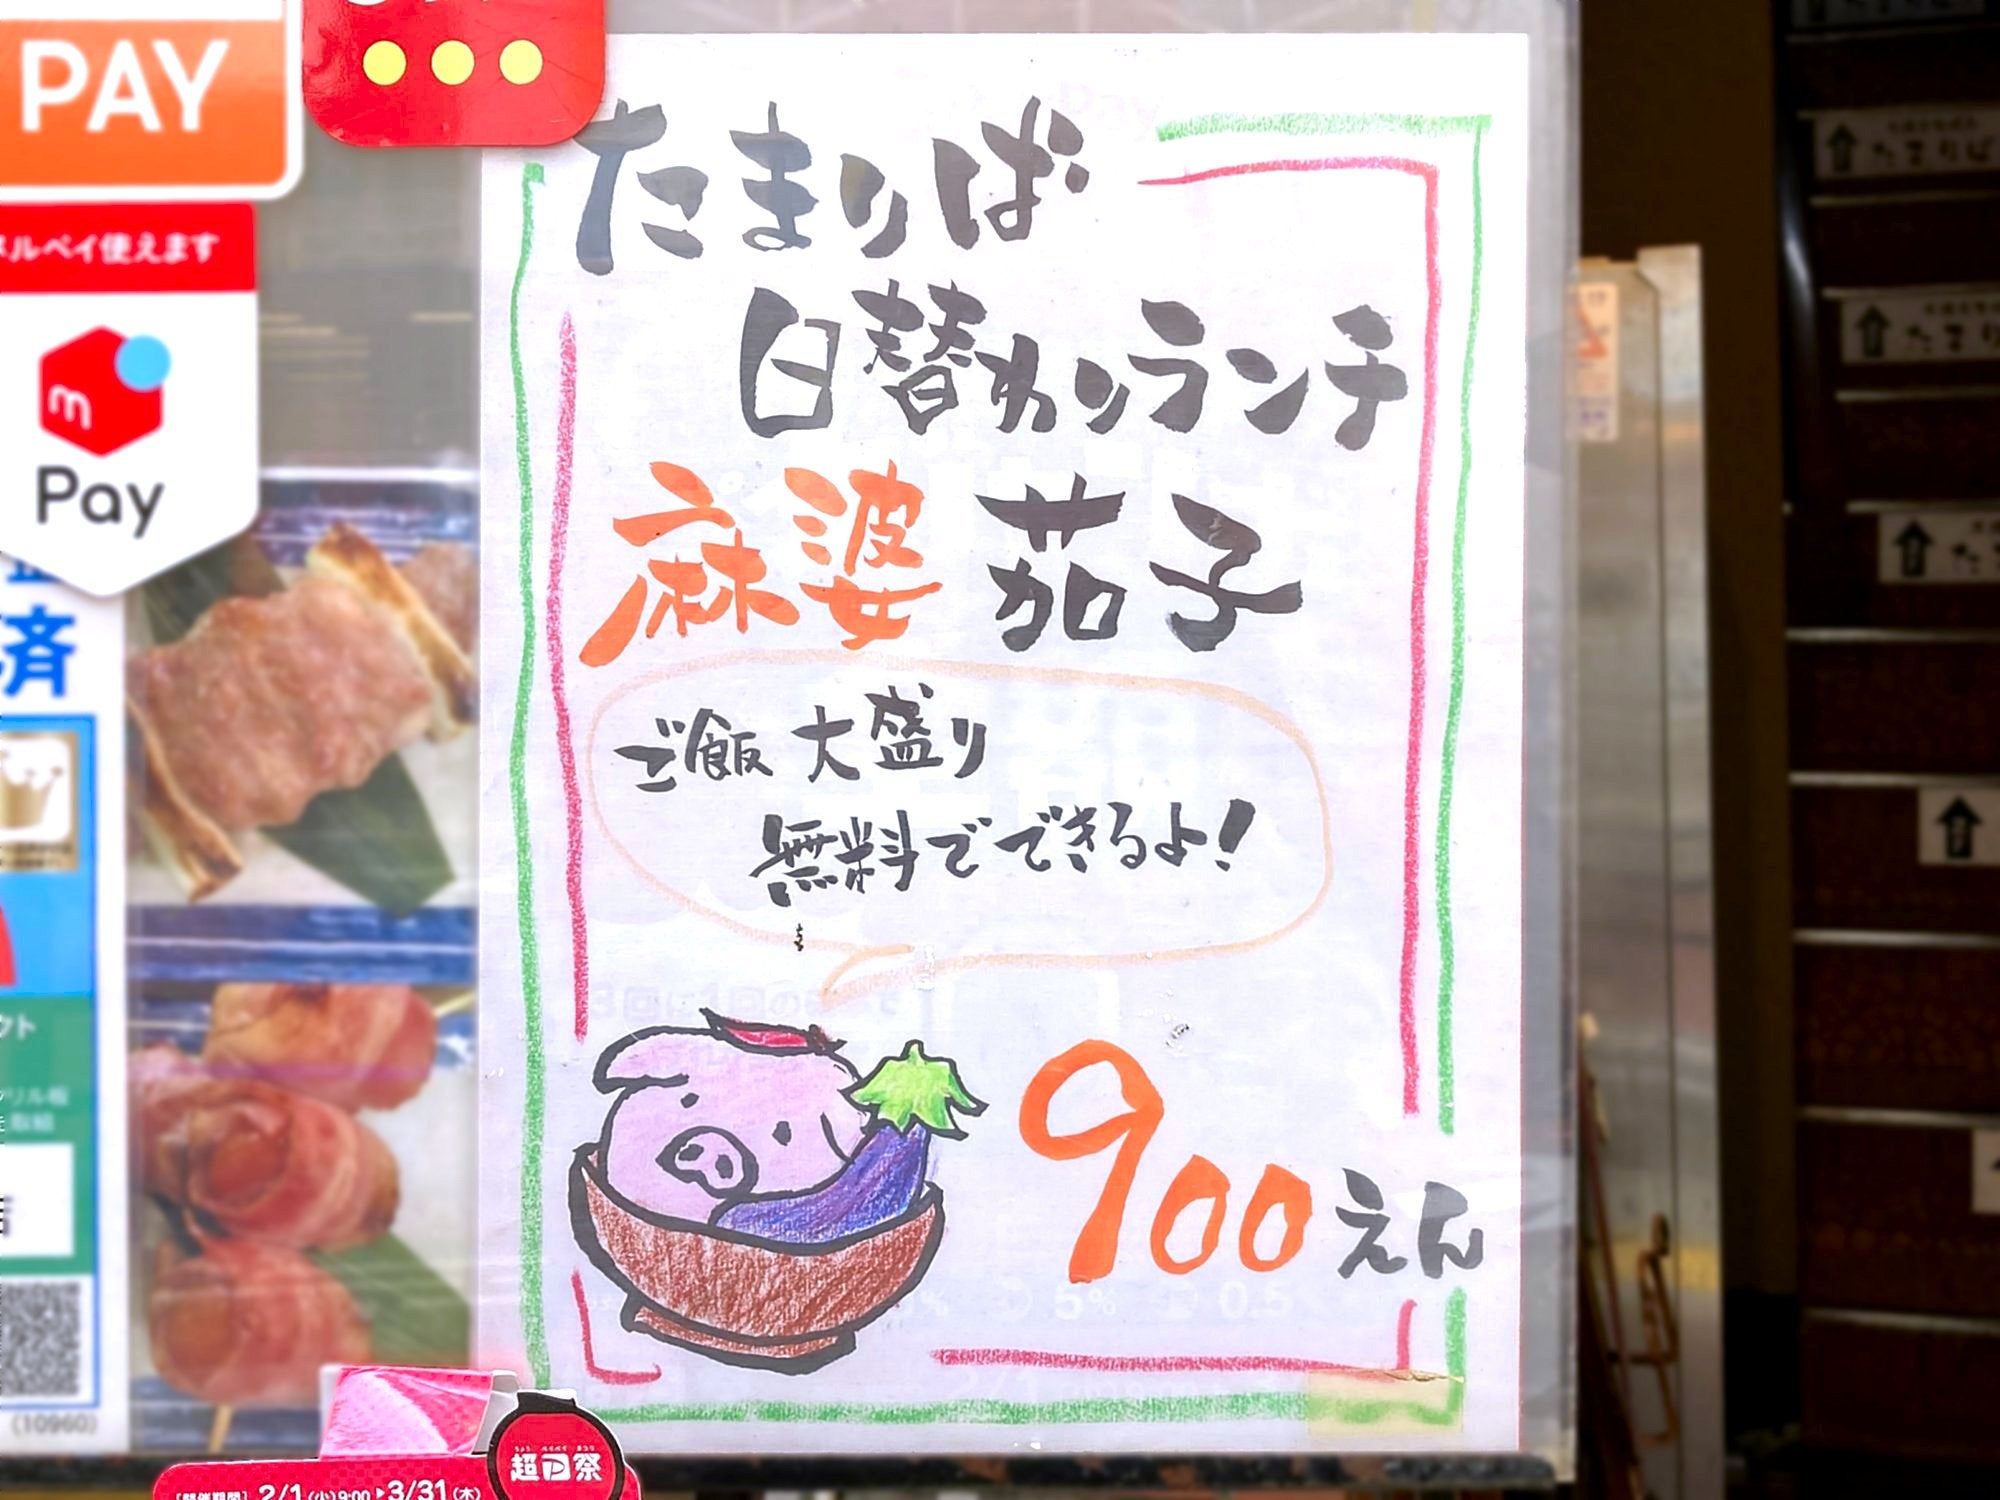 PAY
ルペイ使えます
Pay
済
たまりば
日替わりランチ
麻婆茄子
ご飯大盛り
無料でできるよ!
900えん
クト
(10960)
超P祭
[開催期間] 2/1 9:00 3/31(木)
たまりば
たまり
た